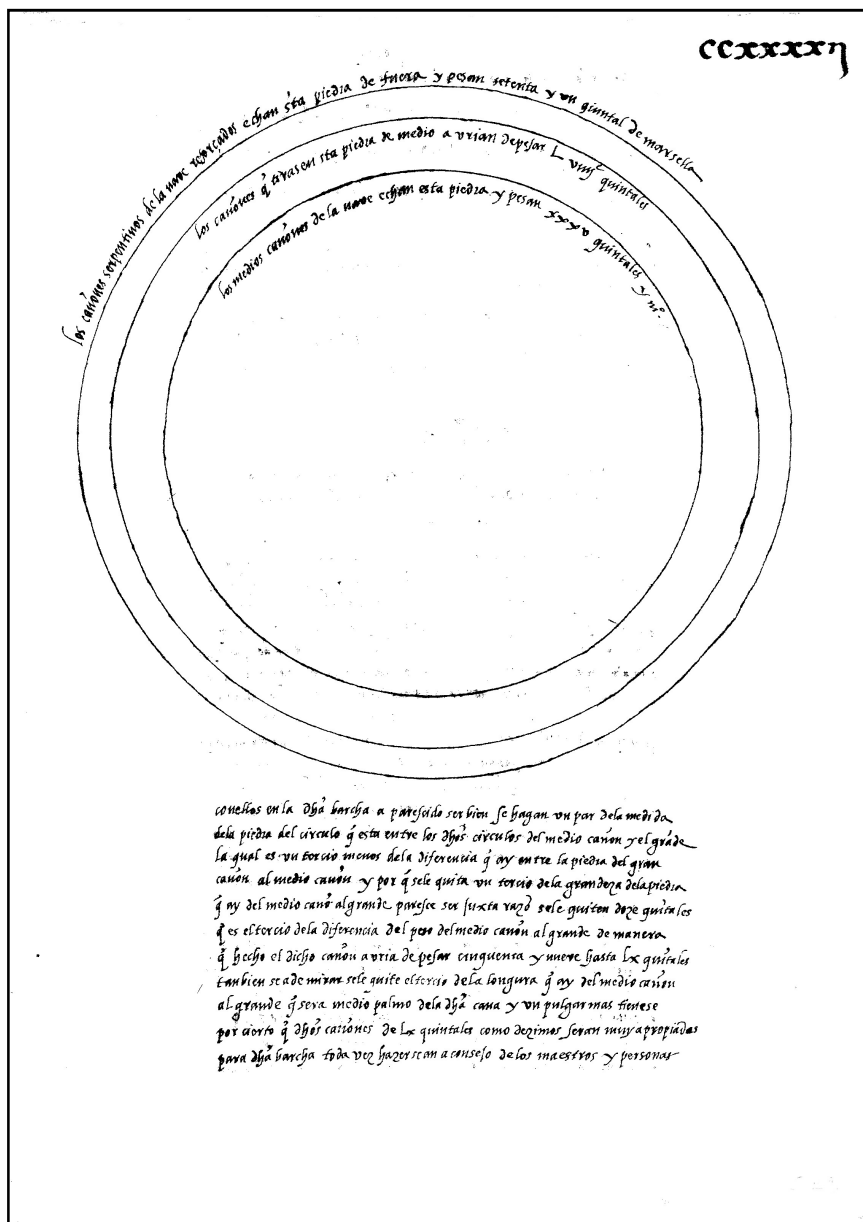 ccxxxxη
los cañones serpentinos de la nave reforçados echan sta piedra de fuera y pesan setenta y un quintal de marsella
los cañones q̃ tirasen sta piedra de medio a vrian de pesar L viiijº quintales
los medios cañones de la nave echan esta piedra y pesan xxxv quintales y mº.
conellos en la dhã barcha a parescido ser bien se hagan vn par dela medida
dela piedra del circulo q̃ esta entre los dhõs circulos del medio cañon y el grãde
la qual es vn tercio menos dela diferencia q̃ ay entre la piedra del gran
cañon al medio cañon y por q̃ sele quita vn tercio dela grandeza dela piedra
q̃ ay del medio cañõ al grande paresce ser juxta razõ sele quiten doze quĩtales
q̃ es el tercio dela diferencia del peso del medio cañon al grande de manera
q̃ hecho el dicho cañon avria de pesar cinquenta y nueve hasta Lx quĩtales
tanbien se a de mirar sele quite el tercio dela longura q̃ ay del medio cañon
al grande q̃ sera medio palmo dela dhã cana y vn pulgar mas tienese
por cierto q̃ dhõs cañones de Lx quintales como dezimos seran muy apropiados
para dhã barcha toda vez hazerse an a consejo de los maestros y personas